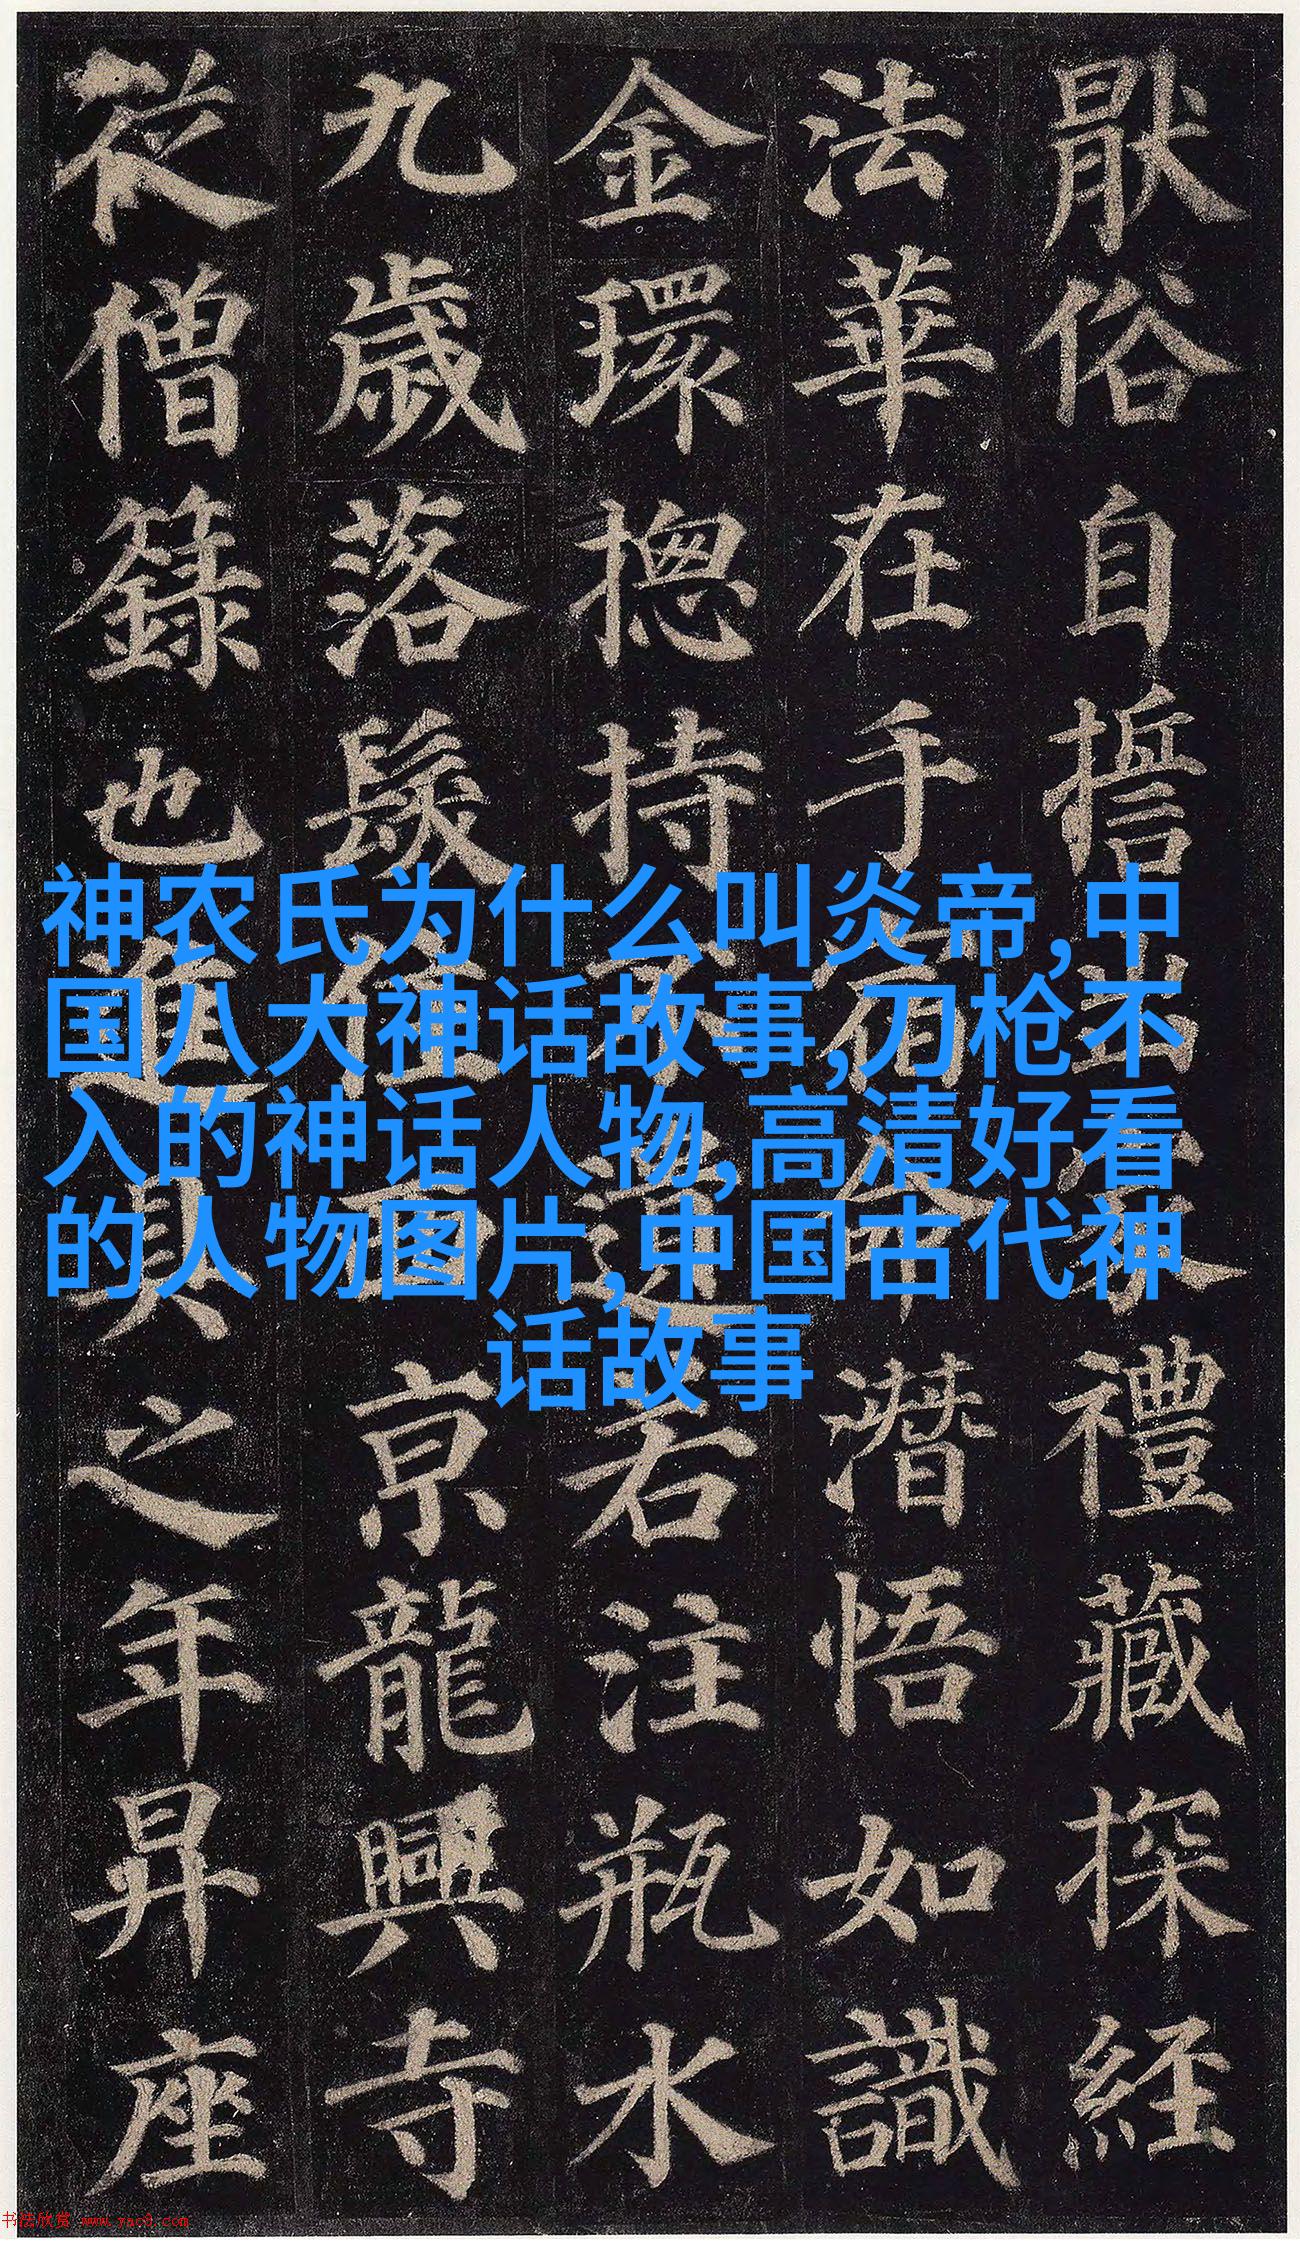 猒俗自誓出家禮藏探経
法華在手宿命潛悟如識
金環揔持不遺若注瓶水
九歲落髮住西京龍興寺
從僧籙也進具之年昇座
神农氏为什么叫炎帝,中
国八大神话故事,刀枪不
入的神话人物,高清好看
的人物图片,中国古代神
话故事
书法欣赏 www.yac8.com